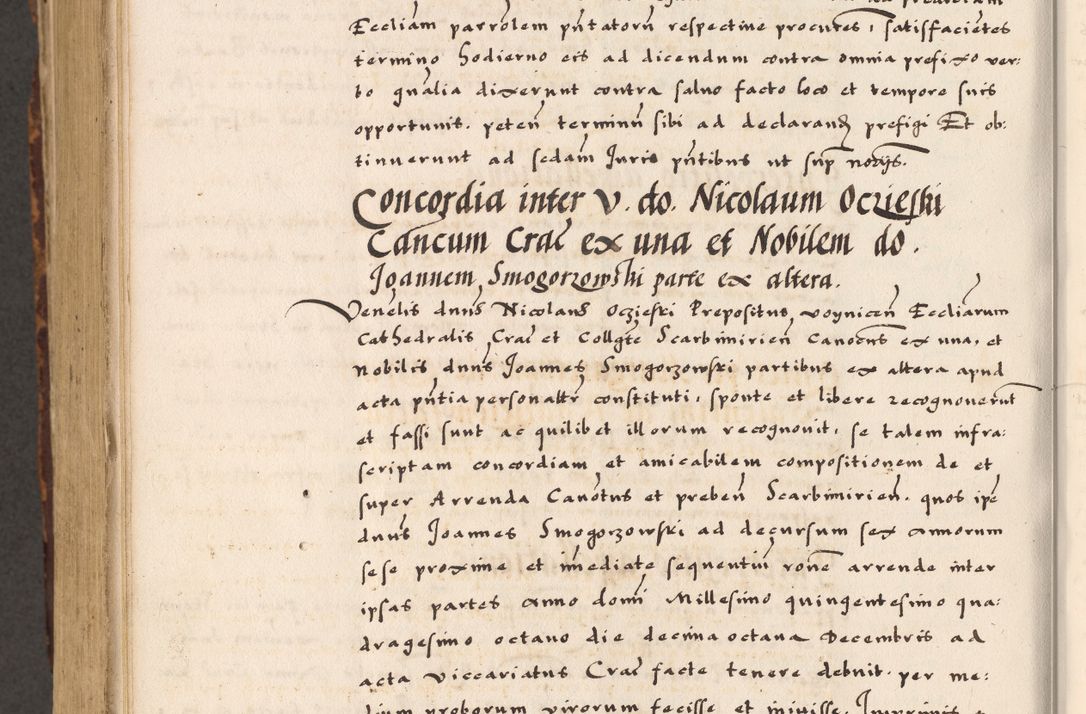 Eccliam parrolem pñtatorn respective procures, satisfacietes
termino hodierno eis ad dicendum contra omnia prefixo ver:
bo qualia dixerunt contra salvo facto loco et tempore suis
opportunit. peteñ terminũ sibi ad declarand prefigi Et ob:
tinuerunt ad sedam Juris pñtibus ut sup nocjs.
Concordia inter V. do. Nicolaum Oczieski
Cancum Crac ex una et Nobilem do.
Joannem Smogorzowski parte ex altera.
Venelis dnus Nicolaus Oczieski Prepositus, voyniceñ Eccliarum
Cathedralis Crac et Collgte Scarbimirieñ Canocus ex una, et
Nobilis dnus Joannes Smogorzowski partibus ex altera apud
acta pñtia personaltr constituti, sponte et libere recognoverut
et fassi sunt ac quilibet illorum recognovit, se talem infra:
scriptam concordiam et amicabilem compositionem de et
super Arrenda Canotus et prebeñ Scarbimirieñ. quos ipe
dnus Joannes Smogorzowski ad decursum sex annorum
sese proxime et imediate sequentiu rone arrende inter
ipsas partes anno domi Millesimo quingentesimo qua:
dragesimo octavo die decima octava Decembris ad
acta Viccariatus Crac facte tenere debuit. per me:
dium proborum virorum fecisse et iniisse.